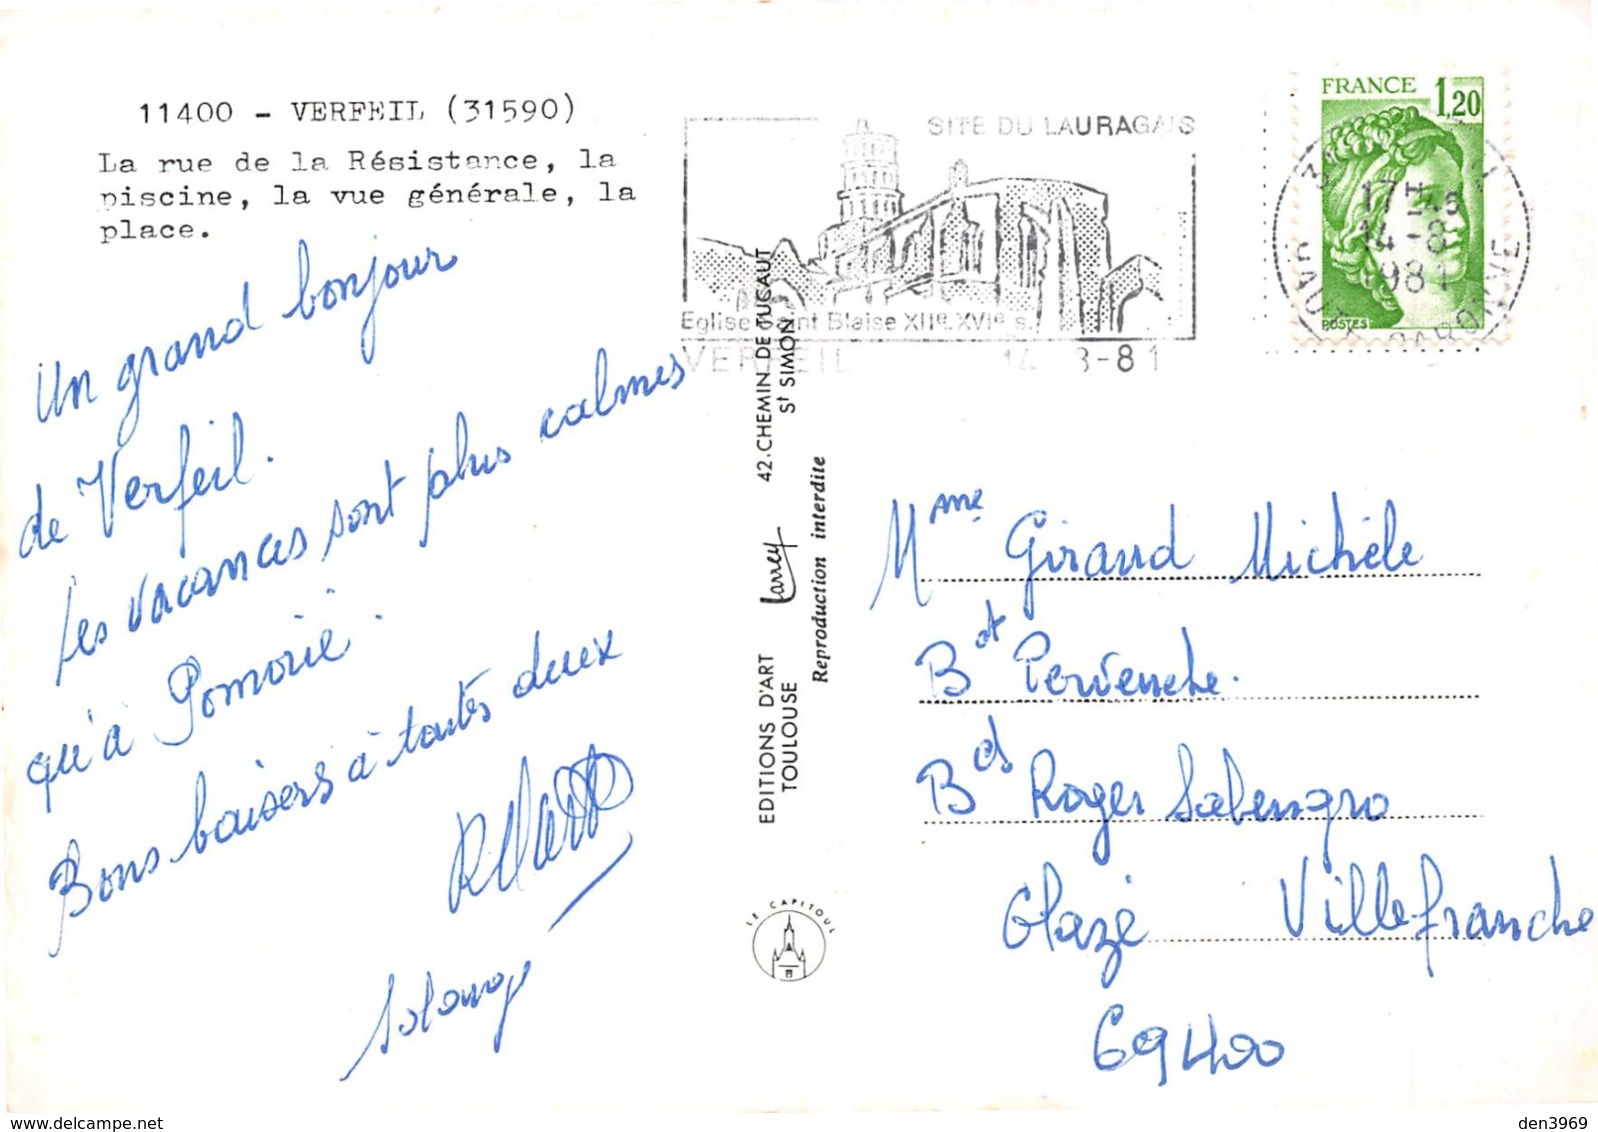 11400 - VERFEIL (31590)
La rue de la Résistance, la
piscine, la vue générale, la
place.
Un grand bonjour
de Verfeil.
Les vacances sont plus calmes
qu'à
Bons baisers à toutes deux
SITE DU LAURAGAIS
Eglise Saint Blaise XIIe XVIe s.
VERFEIL 14-8-81
FRANCE 1,20
POSTES
17H45
14-8
1981
GARONNE
EDITIONS D'ART Larrey 42.CHEMIN DE TUCAUT
TOULOUSE St SIMON
Reproduction interdite
LE CAPITOUL
Mme Giraud Michèle
Bat Pervenche.
Bd Roger Salengro
Glazé Villefranche
69400
delcampe.net
den3969